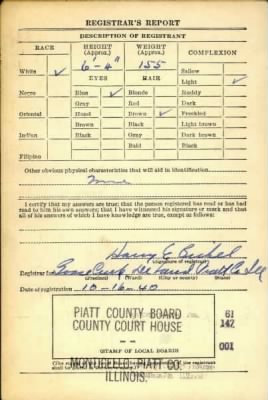 REGISTRAR'S REPORT
DESCRIPTION OF REGISTRANT
RACE HEIGHT (Approx.) WEIGHT (Approx.) COMPLEXION
White ✓ 6'-4" 155 Sallow
EYES HAIR Light ✓
Negro Blue ✓ Blonde Ruddy
Gray Red Dark
Oriental Hazel Brown ✓ Freckled
Brown Black Light brown
Indian Black Gray Dark brown
Bald Black
Filipino
Other obvious physical characteristics that will aid in identification
None
I certify that my answers are true; that the person registered has read or has had
read to him his own answers; that I have witnessed his signature or mark and that
all of his answers of which I have knowledge are true, except as follows:
Harry E.
(Signature of registrar)
Registrar for Goose Creek De Land Piatt Co Ill
(Precinct) (State)
Date of registration 10-16-40
PIATT COUNTY BOARD
COUNTY COURT HOUSE
61
147
001
STAMP OF LOCAL BOARD
MONTICELLO, PIATT CO.
ILLINOIS.